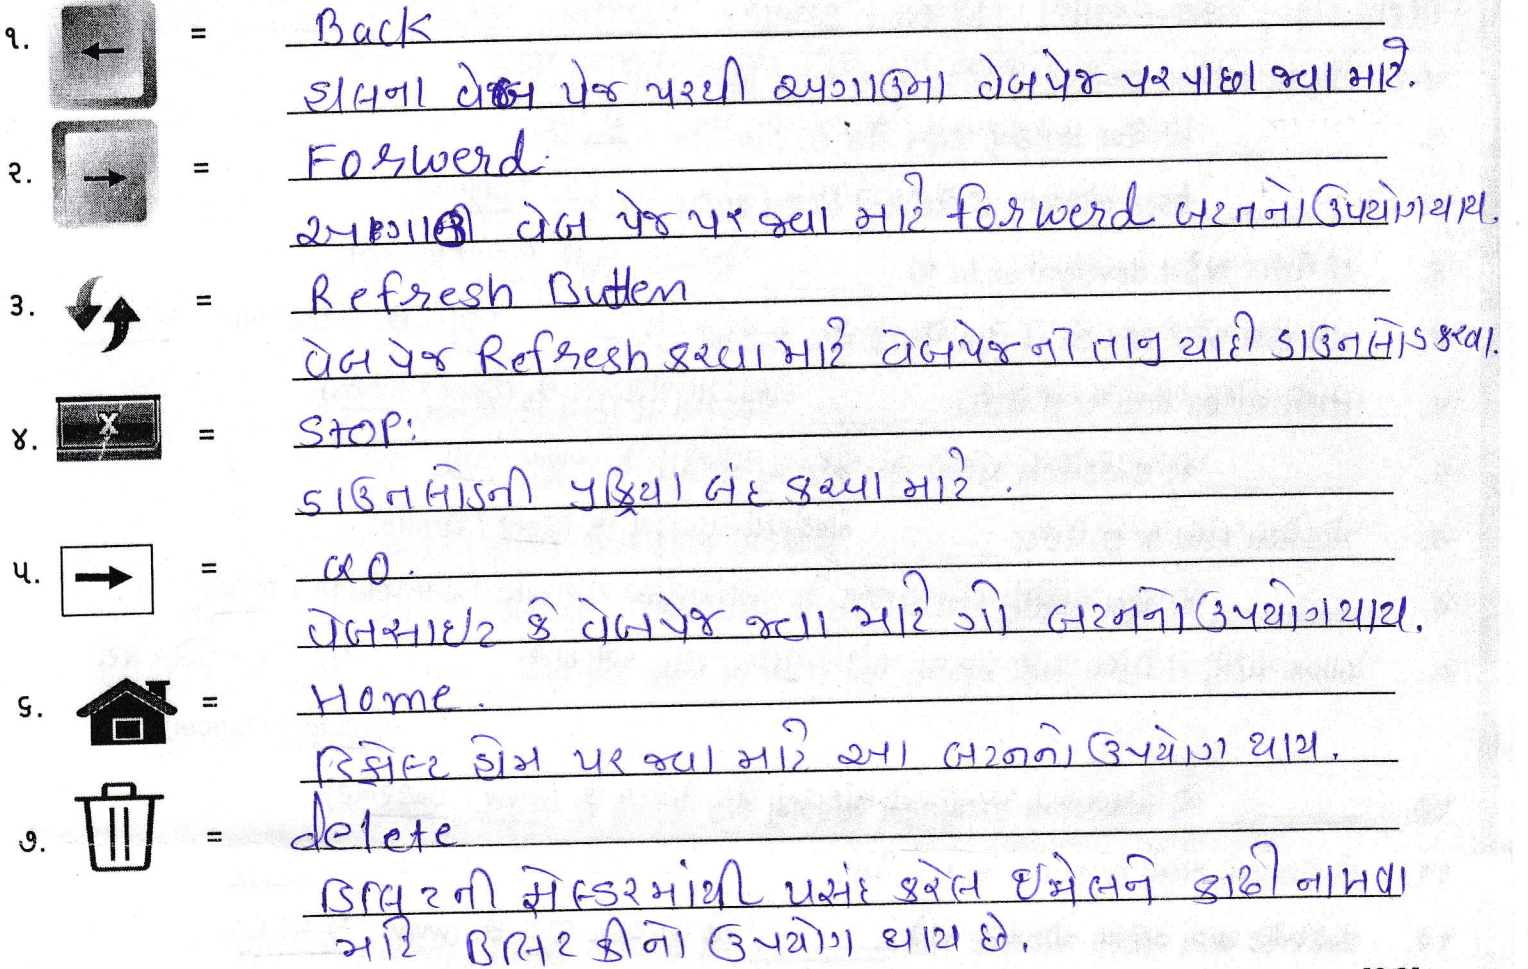 ૧. = Back
હાલના વેબ પેજ પરથી અગાઉના વેબપેજ પર પાછા જવા માટે.
૨. = Forwerd.
અગાઉ વેબ પેજ પર જવા માટે forwerd બટનનો ઉપયોગ થાય.
૩. = Refresh Butten
વેબ પેજ Refresh કરવા માટે વેબપેજની તાજુ યાદી ડાઉનલોડ કરવા.
૪. X = STOP:
ડાઉનલોડની પ્રક્રિયા બંદ કરવા માટે.
૫. = GO.
વેબસાઇટ કે વેબપેજ જવા માટે ગો બટનનો ઉપયોગ થાય.
૬. = Home.
ડિફોલ્ટ હોમ પર જવા માટે આ બટનનો ઉપયોગ થાય.
૭. = delete
ડિલિટની ફોલ્ડરમાંથી પસંદ કરેલ ઈમેલને કાઢી નાખવા
માટે ડિલિટ કીનો ઉપયોગ થાય છે.